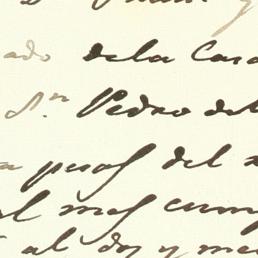 ado de la Casa
Dn. Pedro del
a pesos del
el mes cum
al dos y me